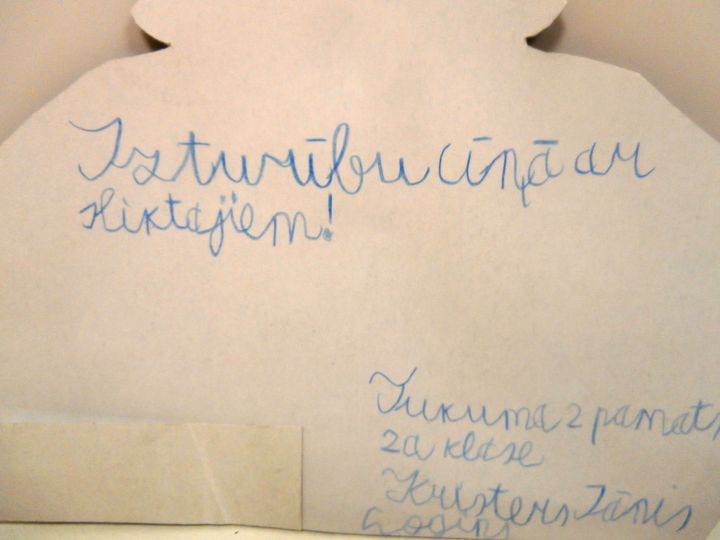 Izturību cīņā ar
sliktajiem!
Tukuma 2 pamats
2a klase
Kristers Jānis